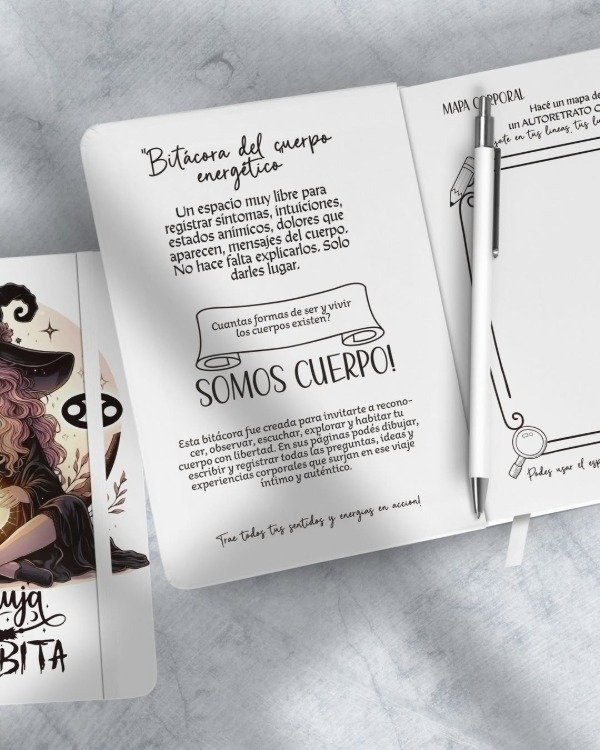 "Bitácora del cuerpo
energético
Un espacio muy libre para
registrar síntomas, intuiciones,
estados anímicos, dolores que
aparecen, mensajes del cuerpo.
No hace falta explicarlos. Solo
darles lugar.
Cuantas formas de ser y vivir
los cuerpos existen?
SOMOS CUERPO!
Esta bitácora fue creada para invitarte a recono-
cer, observar, escuchar, explorar y habitar tu
cuerpo con libertad. En sus páginas podés dibujar,
escribir y registrar todas las preguntas, ideas y
experiencias corporales que surjan en ese viaje
íntimo y auténtico.
Trae todos tus sentidos y energias en accion!
MAPA CORPORAL
Hacé un mapa de
un AUTORETRATO
en tus lineas, tus
Podes usar el
BITA